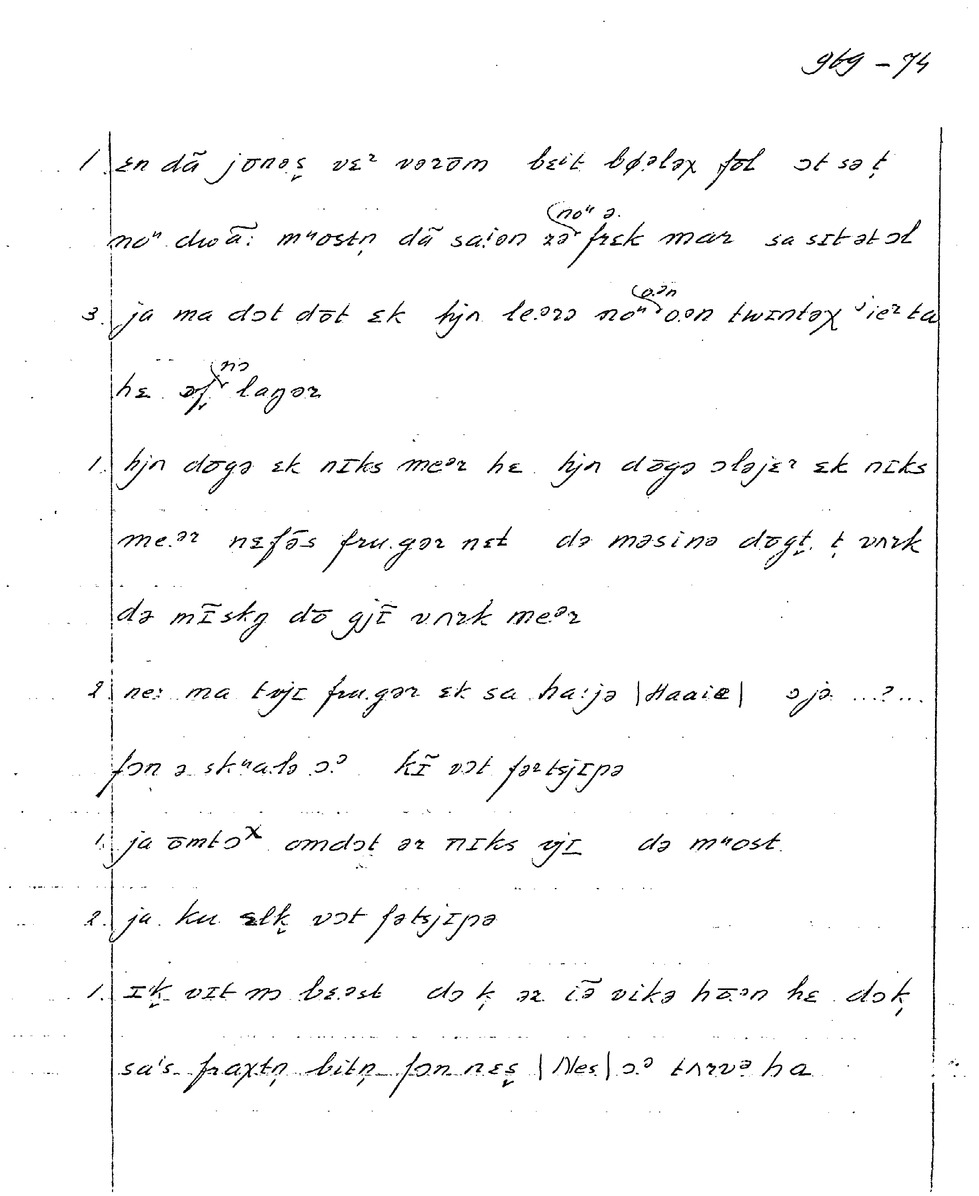 969 – 74
1. ɛn dã jōnəs̬ vɛ² vərōm bɛit bøələχ fōl ɔt sə t̬
noᵘ dwã: mᵘostn̩ dã saiən frɛk mar sa sɪt ət ɔl
noᵘ ə.
3. ja ma dɔt dōt ɛk hjn le.ərə noᵘ o.ən twɪntəχ jieʳ ta
o.ən
hɛ laŋər
nɔ
1. hjn dōgə ɛk nɪks meər hɛ hjn dōgə ɔləjɛʳ ɛk nɪks
me.ər nɛfə̄s fru.gər nɛt də məsinə dōgt̬ t̬ vʌrk
də mɪ̃skŋ dō gjɪ̃ vʌrk meər
2. ne: ma tvjɪ fru.gər ɛk sa ha:jə |Haaie| ɔjə ...?...
fɔn ə skᵘa.lə ɔ.ə kɪ̃ vɔt fərtsjɪpə
1. ja ōmtɔχ omdɔt̬ ər nɪks vjɪ də mᵘost.
2. ja. ku ɛlk̬ vɔt fətsjɪpə
1. ɪk̬ vɪt m bɛ.əst dɔ k̬ ər iə̃ vikə hō.ən hɛ dɔk̬
saˈs fraχtn̩ bitn̩ fɔn nɛs̬ |Nes| ɔ.ə tʌrvə ha